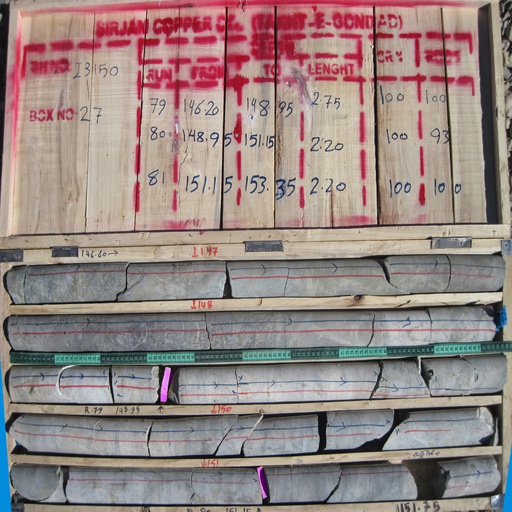 SIRJAN COPPER CO. (TAKHT-E-GONBAD)
BH NO: I3150
RUN FROM TO LENGHT CR.Y RQD%
BOX NO: 27
79 146.20 148.95 2.75 100 100
80 148.95 151.15 2.20 100 93
81 151.15 153.35 2.20 100 100
146.60→ ↓147
↓148
R.79 148.95 ↑ ↓150
↓151
151.75